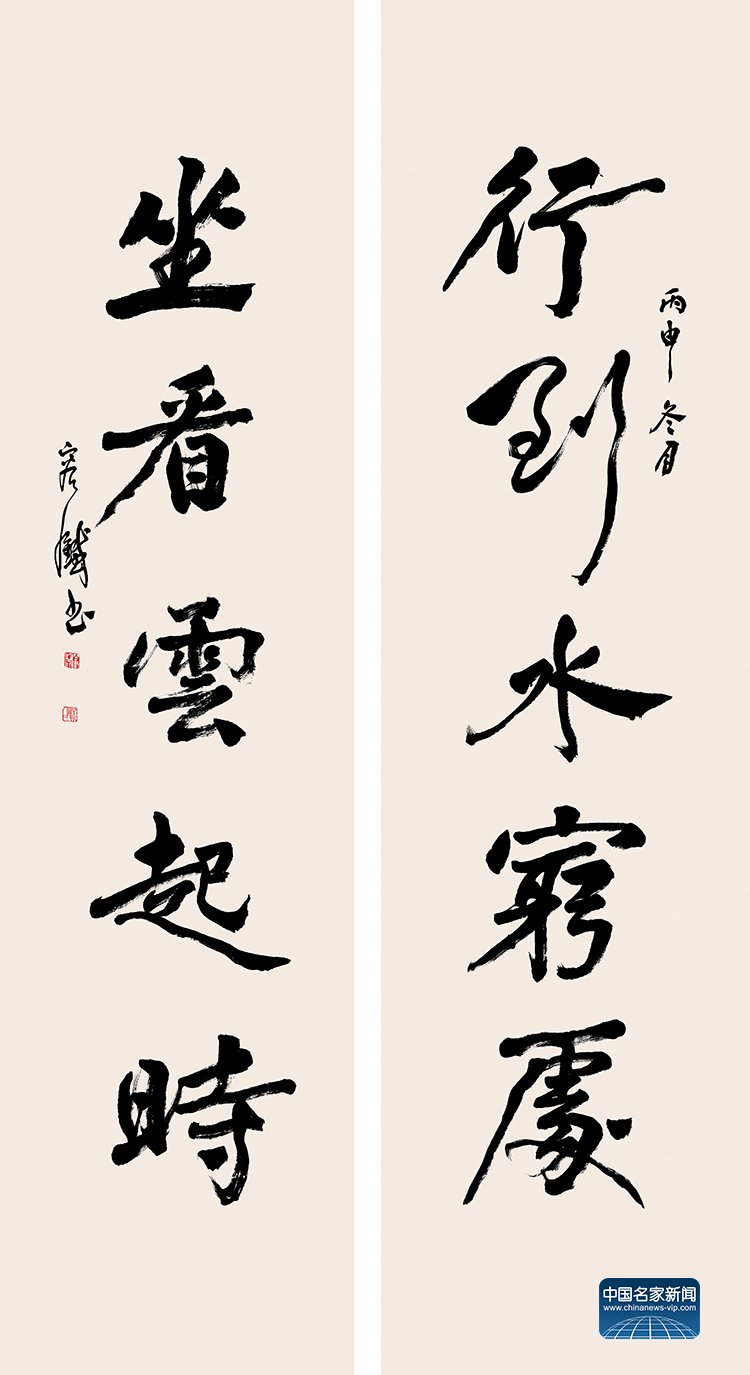 行到水窮處
丙申冬月
坐看雲起時
中国名家新闻
www.chinanews-vip.com